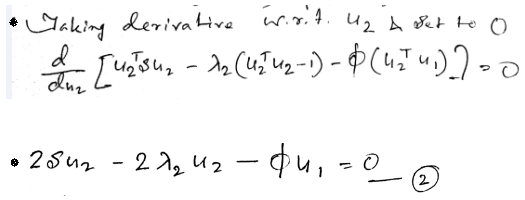 • Taking derivative w.r.t. u₂ & set to 0
d/du₂ [u₂ᵀSu₂ - λ₂(u₂ᵀu₂-1) - ϕ(u₂ᵀu₁)] = 0
• 2Su₂ - 2λ₂u₂ - ϕu₁ = 0 — ②